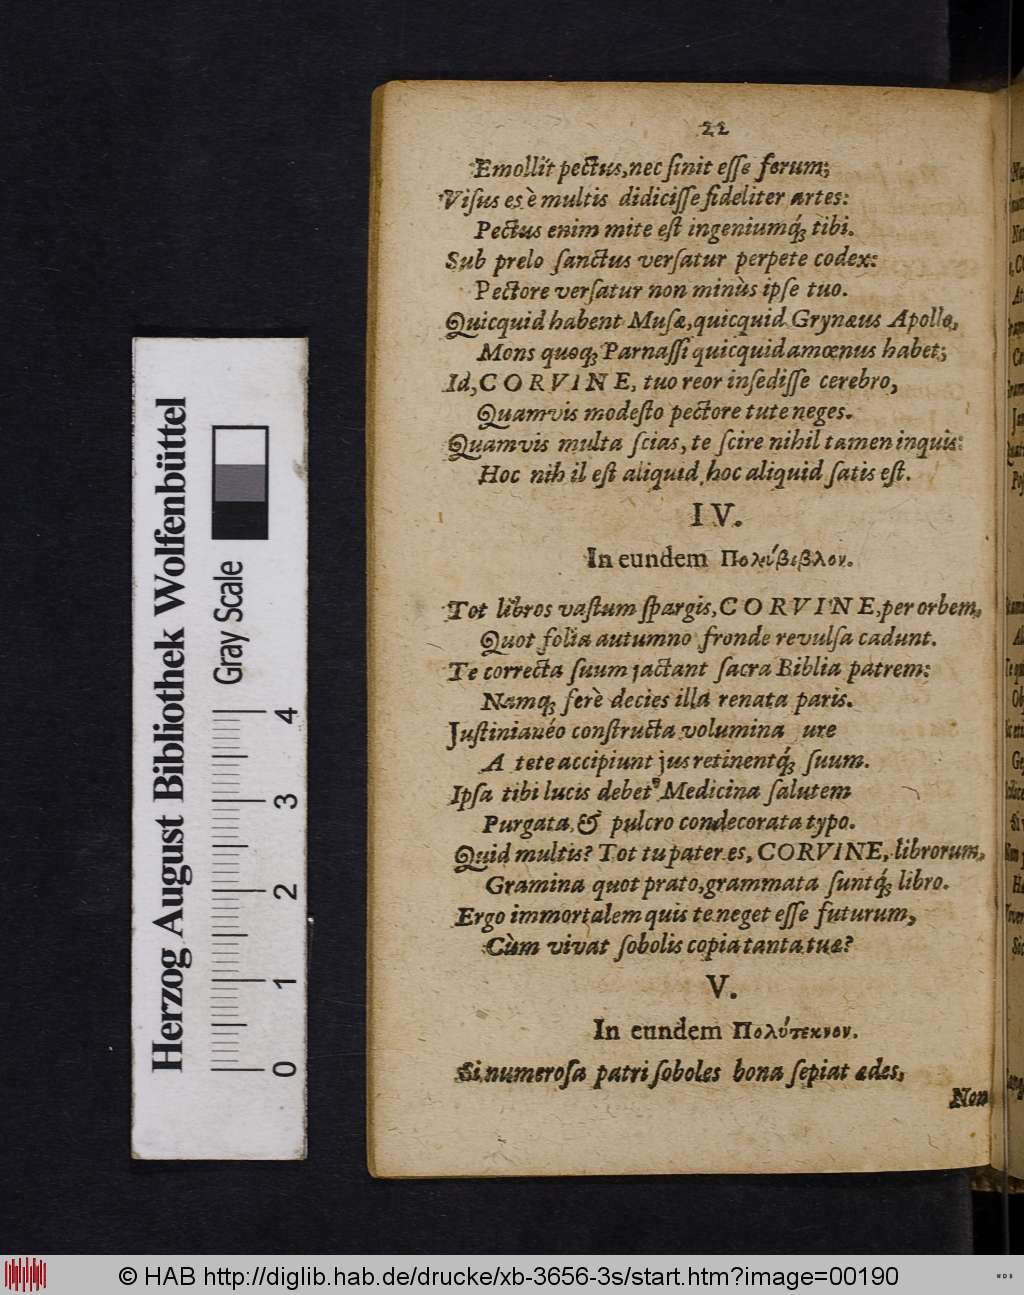 22
Emollit pectus, nec ſinit eſſe ferum;
Viſus es è multis didiciſſe fideliter artes:
Pectus enim mite eſt ingeniumq́ꝫ tibi.
Sub prelo ſanctus verſatur perpete codex:
Pectore verſatur non minùs ipſe tuo.
Quicquid habent Muſæ, quicquid Grynæus Apollo,
Mons quoqꝫ Parnaſſi quicquid amœnus habet;
Id, CORVINE, tuo reor inſediſſe cerebro,
Quamvis modeſto pectore tute neges.
Quamvis multa ſcias, te ſcire nihil tamen inquis:
Hoc nihil eſt aliquid, hoc aliquid ſatis eſt.
IV.
In eundem Πολύβιβλον.
Tot libros vaſtum ſpargis, CORVINE, per orbem,
Quot folia autumno fronde revulſa cadunt.
Te correcta ſuum jactant ſacra Biblia patrem:
Namqꝫ ferè decies illa renata paris.
Juſtinianéo conſtructa volumina ure
A te te accipiunt jus retinentq́ꝫ ſuum.
Ipſa tibi lucis debet Medicina ſalutem
Purgata, & pulcro condecorata typo.
Quid multis? Tot tu pater es, CORVINE, librorum,
Gramina quot prato, grammata ſuntq́ꝫ libro.
Ergo immortalem quis te neget eſſe futurum,
Cùm vivat ſobolis copia tanta tuæ?
V.
In eundem Πολύτεκνον.
Si numeroſa patri ſoboles bona ſepiat ædes,
Non
Herzog August Bibliothek Wolfenbüttel
Gray Scale
0 1 2 3 4
© HAB http://diglib.hab.de/drucke/xb-3656-3s/start.htm?image=00190